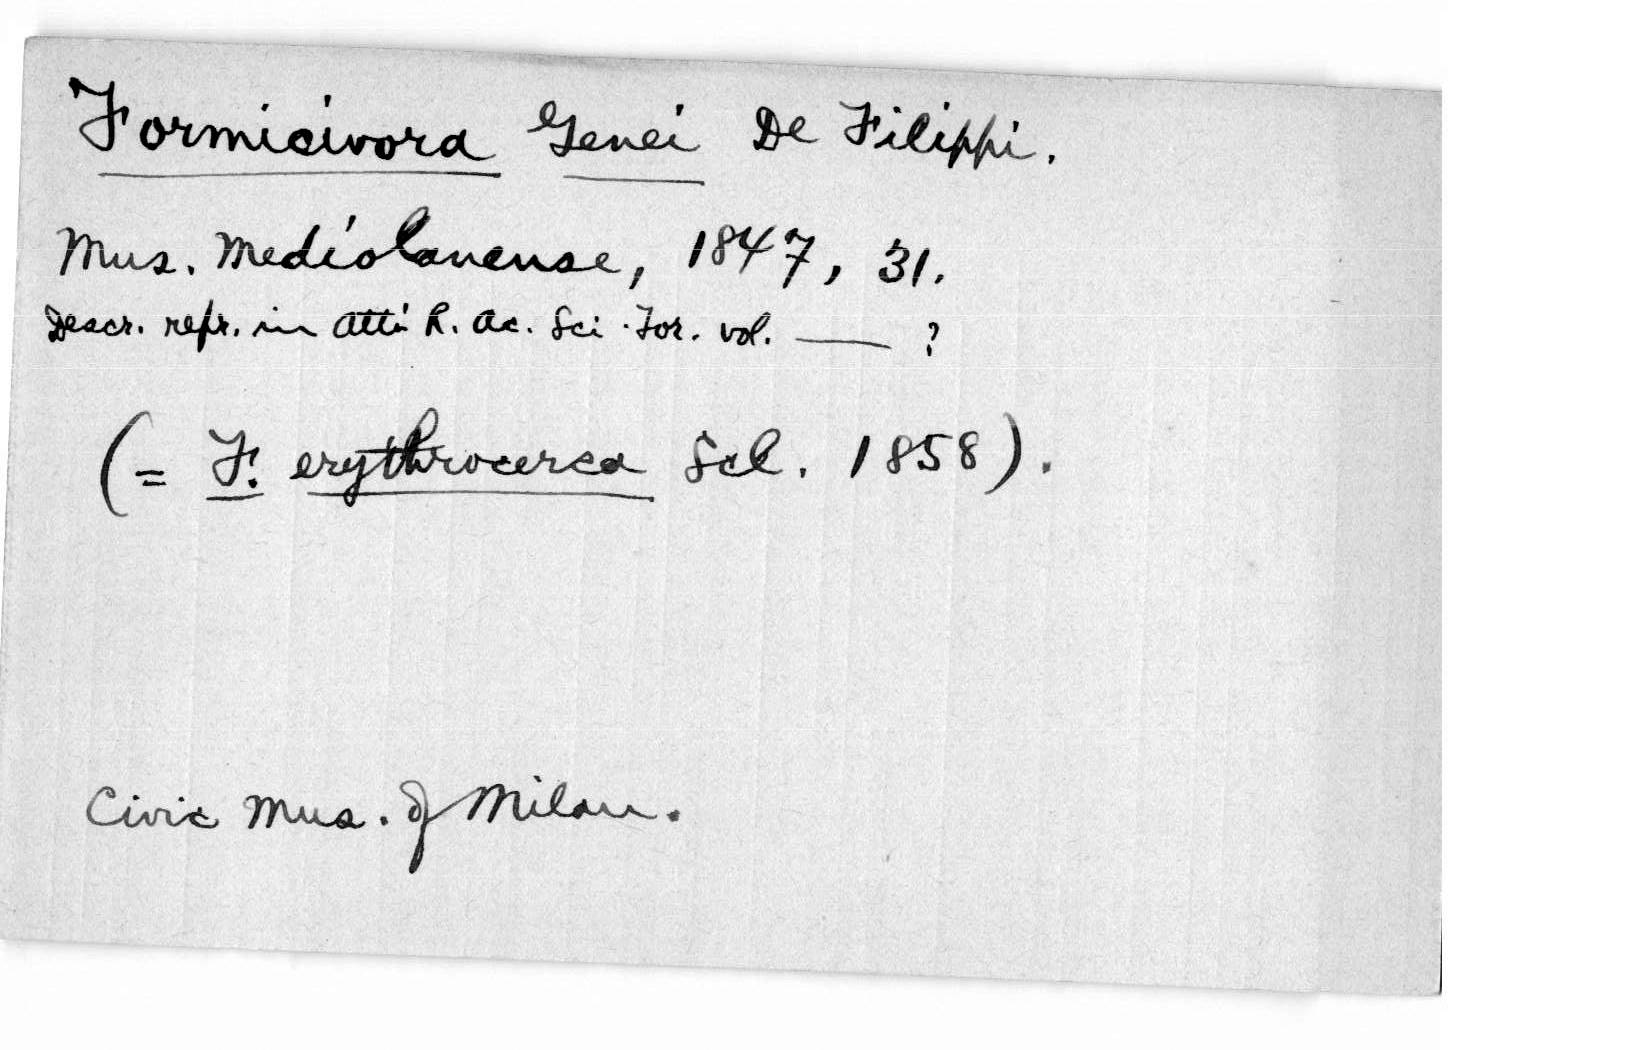 Formicivora Genei De Filippi.
Mus. Mediolanense, 1847, 31.
Descr. repr. in Atti R. Ac. Sci. Tor. vol. —— ?
(= F. erythrocerca Scl. 1858).
Civic Mus. of Milan.